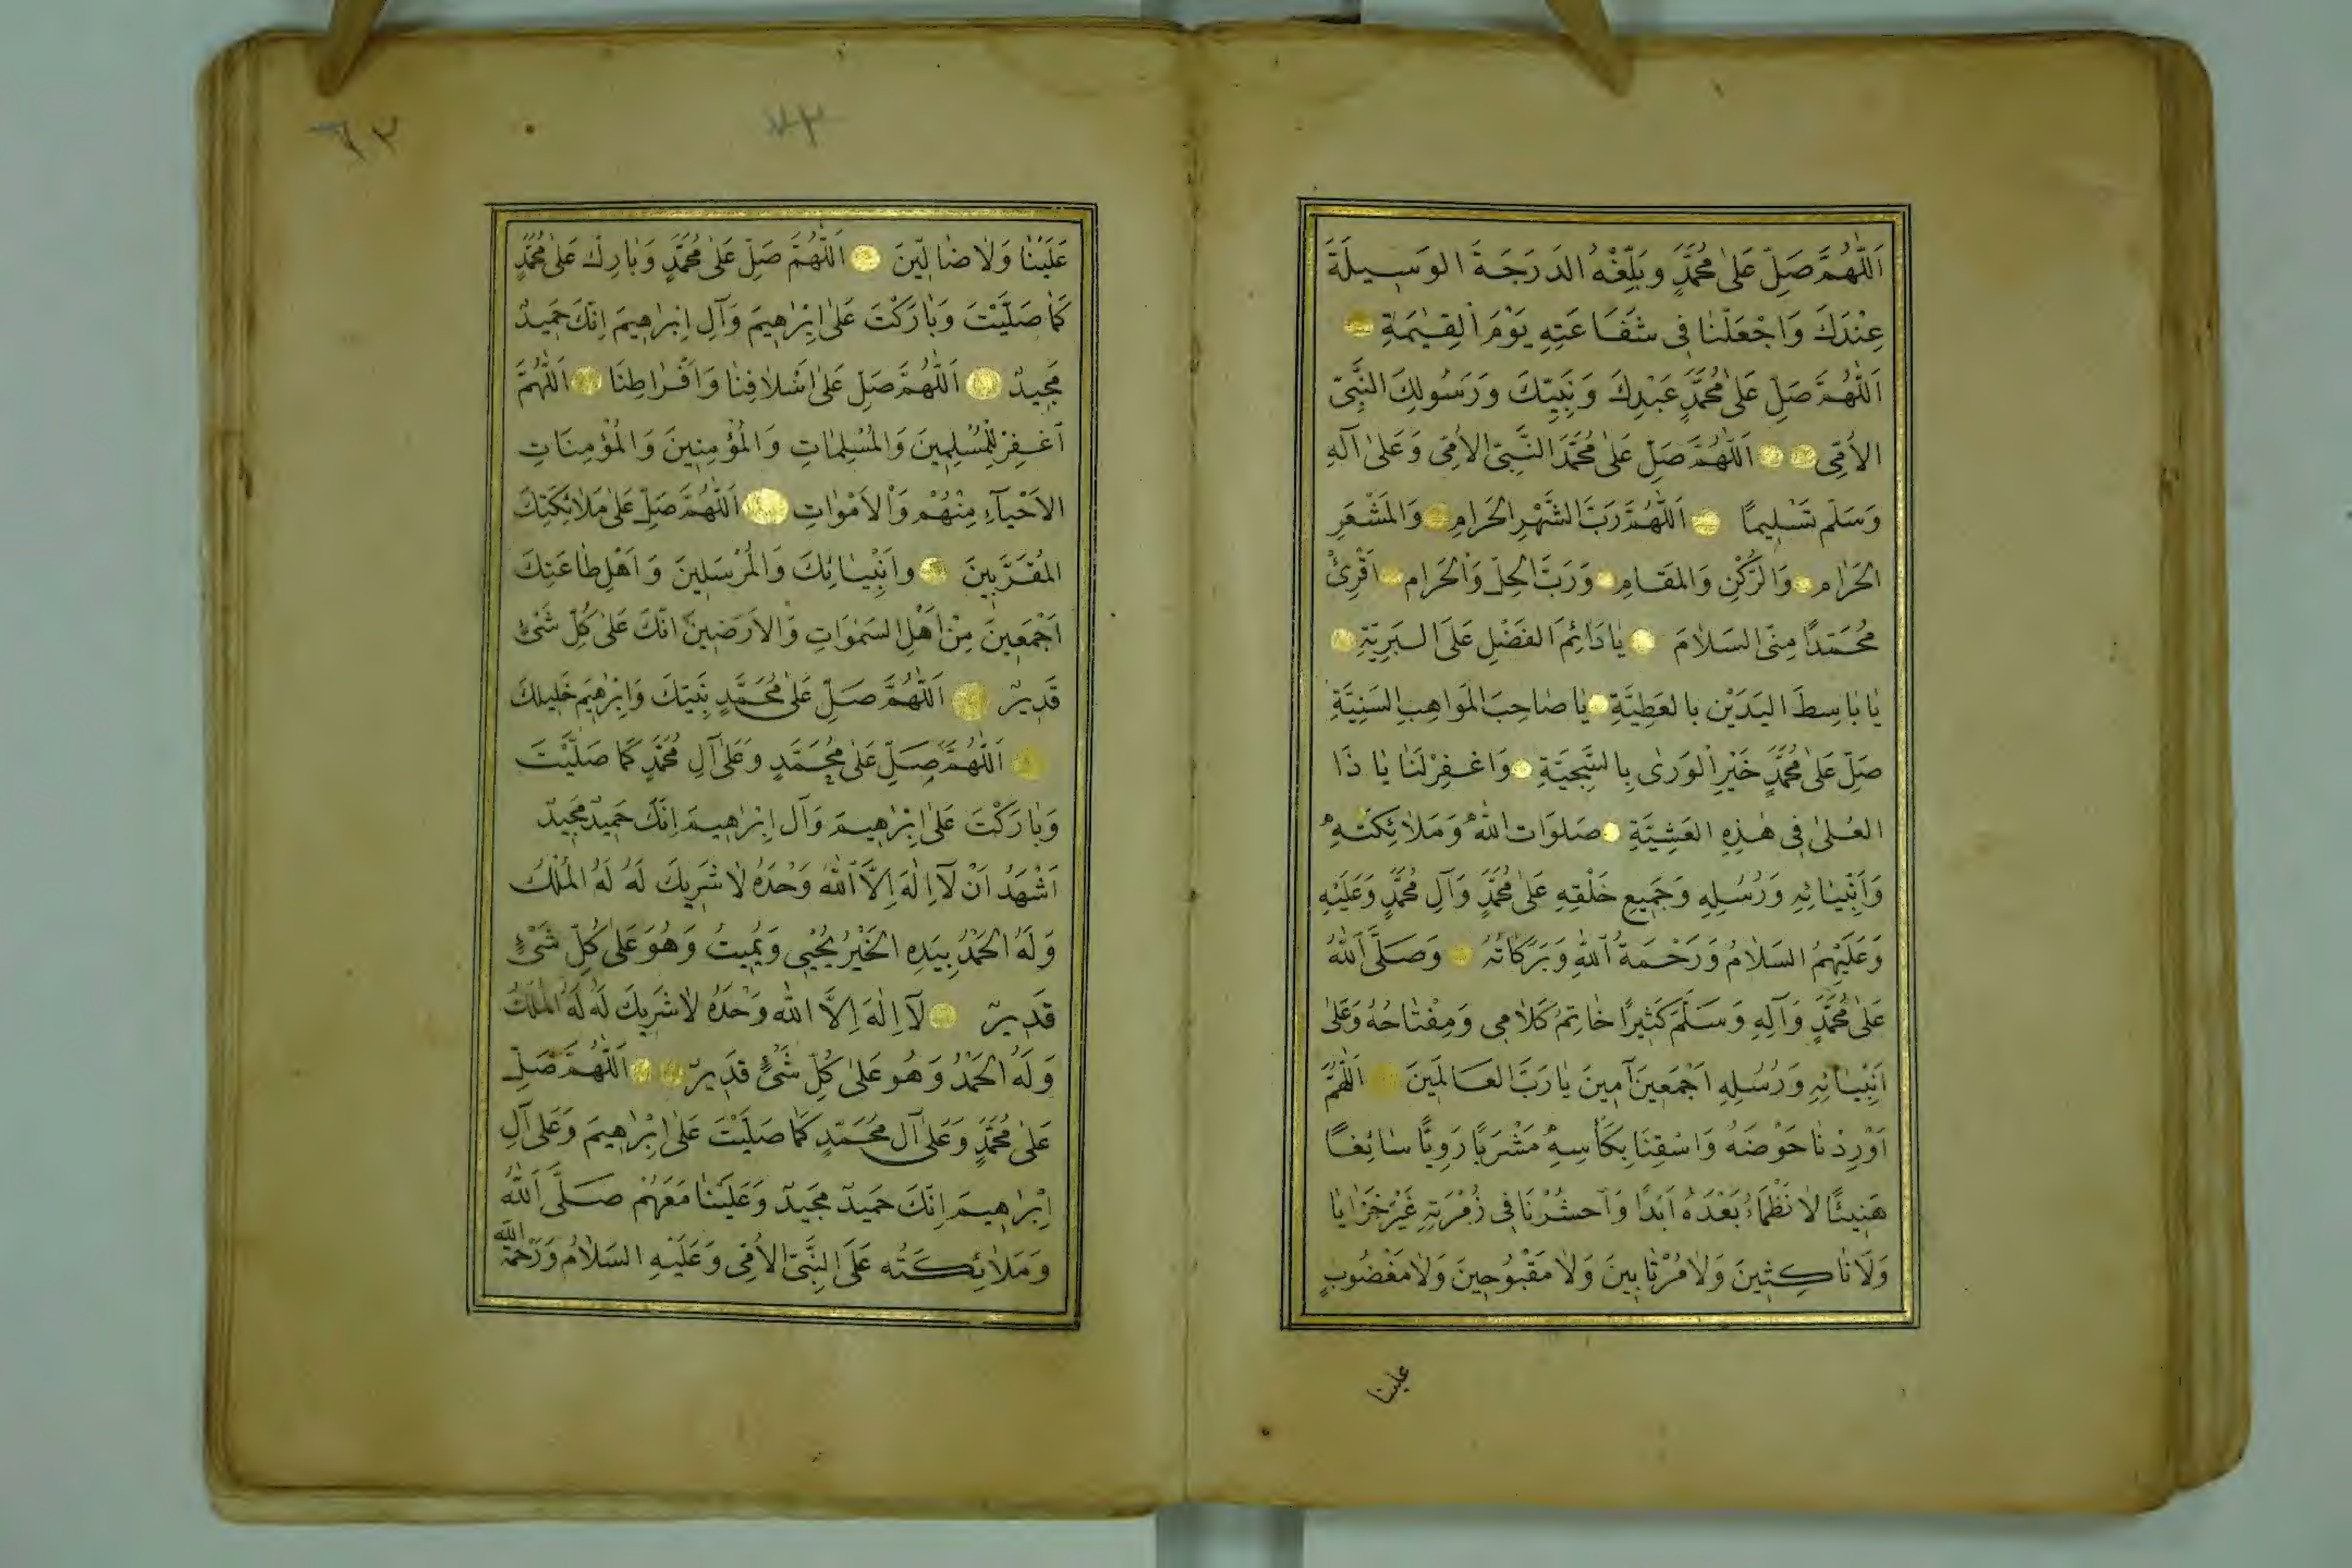 اَللّٰهُمَّ صَلِّ عَلٰى مُحَمَّدٍ وبَلِّغْهُ الدَرَجَةَ الوَسِيلَةَ
عِنْدَكَ وَاجْعَلْنٰا فِى شَفَاعَتِهِ يَوْمَ الْقِيٰمَةِ
اَللّٰهُمَّ صَلِّ عَلٰى مُحَمَّدٍ عَبْدِكَ وَنَبِيِّكَ وَرَسُولِكَ النَّبِىِّ
الاُمِّى اَللّٰهُمَّ صَلِّ عَلٰى مُحَمَّدَ النَّبِىِّ الاُمِّى وَعَلٰى آلِهِ
وَسَلِّم تَسْلِيمًا اَللّٰهُمَّ رَبَّ الشَّهْرِ الحَرَامِ وَالمَشْعَرِ
الحَرٰامِ وَالرُّكْنِ وَالمَقَامِ وَرَبَّ الحِلِّ وَالْحَرَامِ اَقْرِئْ
مُحَمَّدًا مِنِّى السَلٰامَ يٰا دَائِمَ الفَضْلِ عَلَى البَرِيَّةِ
يٰا بٰاسِطَ اليَدَيْنِ بالعَطِيَّةِ يٰا صٰاحِبَ المَوَاهِبِ السَنِيَّةِ
صَلِّ عَلٰى مُحَمَّدٍ خَيْرِ الْوَرٰى بِالسَّجِيَّةِ وَاغْفِرْلَنٰا يٰا ذَا
العُلٰى فِى هٰذِهِ العَشِيَّةِ صَلوَات اللّٰهُ وَمَلٰائِكَتُهُ
وَاَنْبِيٰائِهِ وَرُسُلِهِ وَجَمِيعِ خَلْقِهِ عَلٰى مُحَمَّدٍ وَآلِ مُحَمَّدٍ وَعَلَيْهِ
وَعَلَيْهِمُ السَلٰامُ وَرَحْمَةُ اللّٰهِ وَبَرَكَاتُهُ وَصَلَّى اللّٰهُ
عَلٰى مُحَمَّدٍ وَآلِهِ وَسَلَّمَ كَثِيرًا خٰاتِمُ كَلٰامِى وَمِفْتٰاحُهُ وَعَلٰى
اَنْبِيٰائِهِ وَرُسُلِهِ اَجْمَعِينَ آمِينَ يٰا رَبَّ العَالَمِينَ اَللّٰهُمَّ
اَوْرِدْنٰا حَوْضَهُ وَاسْقِنَا بِكَأسِهِ مَشْرَبًا رَوِيًّا سٰائِغًا
هَنِيئًا لٰا نَظْمَاءُ بَعْدَهُ اَبَدًا وَاحشُرْنَا فِى زُمْرَتِهِ غَيْرَ خَزٰايٰا
وَلَا نٰاكِثِينَ وَلٰا مُرْتٰابِينَ وَلٰا مَقْبُوحِينَ وَلٰا مَغْضُوبٍ
علينا
٦٢
عَلَيْنٰا وَلٰا ضٰالِّينَ اَللّٰهُمَّ صَلِّ عَلٰى مُحَمَّدٍ وَبٰارِكْ عَلٰى مُحَمَّدٍ
كَمٰا صَلَّيْتَ وَبٰارَكْتَ عَلٰى اِبْرٰاهِيمَ وَآلِ اِبْرٰاهِيمَ اِنَّكَ حَمِيدٌ
مَجِيدٌ اَللّٰهُمَّ صَلِّ عَلٰى اَسْلٰافِنٰا وَاَفْرٰاطِنَا اَللّٰهُمَّ
اَغْفِرْ لِلْمُسْلِمِينَ وَالمُسْلِمٰاتِ وَالْمُؤْمِنِينَ وَالْمُؤْمِنَاتِ
الاَحْيآءِ مِنْهُمْ وَالْاَمْوٰاتِ اَللّٰهُمَّ صَلِّ عَلٰى مَلٰائِكَتِكَ
المُقَرَّبِينَ وَاَنْبِيٰائِكَ وَالْمُرْسَلِينَ وَاَهْلِ طٰاعَتِكَ
اَجْمَعِينَ مِنْ اَهْلِ السَمٰوَاتِ وَالْاَرَضِينَ اِنَّكَ عَلٰى كُلِّ شَىْءٍ
قَدِيرٌ اَللّٰهُمَّ صَلِّ عَلٰى مُحَمَّدٍ نَبِيِّكَ وَاِبْرٰهِيمَ خَلِيلِكَ
اَللّٰهُمَّ صَلِّ عَلٰى مُحَمَّدٍ وَعَلٰى آلِ مُحَمَّدٍ كَمٰا صَلَّيْتَ
وَبٰارَكْتَ عَلٰى اِبْرٰاهِيمَ وَآلِ اِبْرٰاهِيمَ اِنَّكَ حَمِيدٌ مَجِيدٌ
اَشْهَدُ اَنْ لٰآ اِلٰهَ اِلاَّ اللّٰهُ وَحْدَهُ لٰا شَرِيكَ لَهُ لَهُ المُلْكُ
وَلَهُ الحَمْدُ بِيَدِهِ الخَيْرُ يُحْيِى وَيُمِيتُ وَهُوَ عَلٰى كُلِّ شَىْءٍ
قَدِيرٌ لٰآ اِلٰهَ اِلاَّ اللّٰه وَحْدَهُ لٰا شَرِيكَ لَهُ لَهُ المُلْكُ
وَلَهُ الحَمْدُ وَهُو عَلٰى كُلِّ شَىْءٍ قَدِيرٌ اَللّٰهُمَّ صَلِّ
عَلٰى مُحَمَّدٍ وَعَلٰى آلِ مُحَمَّدٍ كَمٰا صَلَيْتَ عَلٰى اِبْرٰاهِيمَ وَعَلٰى آلِ
اِبْرٰاهِيمَ اِنَّكَ حَمِيدٌ مَجِيدٌ وَعَلَيْنٰا مَعَهُمْ صَلَّى اَللّٰهُ
وَمَلٰائِكَتُه عَلَى النَّبِىِّ الاُمِّى وَعَلَيْهِ السَلٰامُ وَرَحْمَةُ اللّٰه